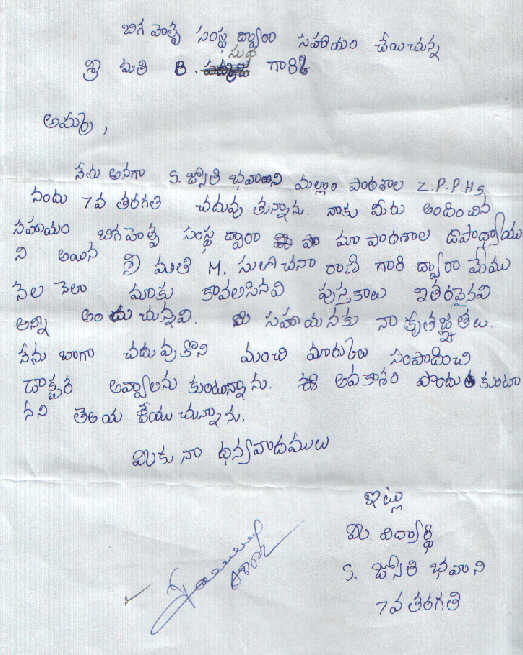 బిగ్ హెల్ప్ సంస్థ ద్వారా సహాయం చేయుచున్న
శ్రీ మతి B. సుధ గారికి
అమ్మా,
నేను అనగా S. జ్యోతి భవాని మల్లాం పాఠశాల Z.P.P.H.S
నందు 7వ తరగతి చదువు తున్నాను నాకు మీరు అందించిన
సహాయం బిగ్ హెల్ప్ సంస్థ ద్వారా మా పాఠశాల ఉపాధ్యాయు
ని అయిన శ్రీ మతి M. సులోచనా రాణి గారి ద్వారా మేము
నెల నెలా మాకు కావలసినవి పుస్తకాలు ఇతరమైనవి
అన్ని అందు చున్నవి. మీ సహాయనకు నా కృతజ్ఞతలు.
నేను బాగా చదువుకొని మంచి మార్కులు సంపాదించి
డాక్టర్ అవ్వాలను కుంటున్నాను. ఈ అవకాశం పొందుకుంటా
నని తెలియ జేయుచున్నాను.
మీకు నా ధన్యవాదములు
ఇట్లు
మీ విద్యార్థి
S. జ్యోతి భవాని
7వ తరగతి